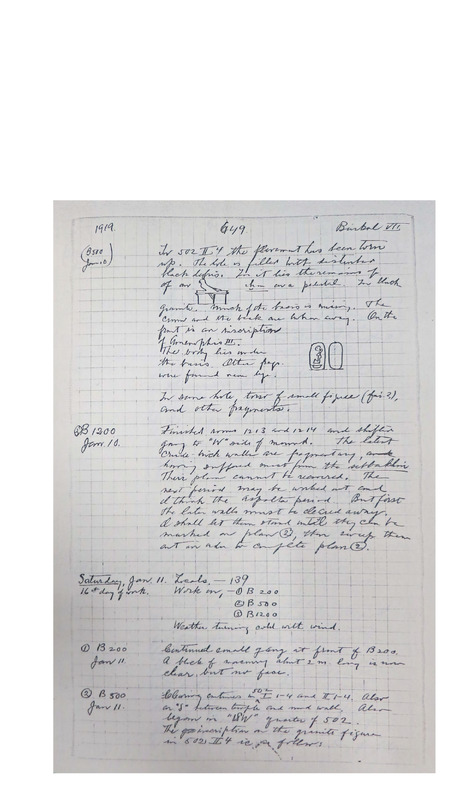 1919. 649 Barkal VII.
(B 500
Jan. 10)
In 502 II 4 the pavement has been torn
up. The hole is filled with disturbed
black debris. In it lies the remains of
of an on a pedestal. In black
granite. Much of the basis is missing. The
and the back are broken away. On the
front is an inscription
of Amenophis III.
The body lies under
the basis. Other frags.
were found near by.
In same hole, torso of small figure (fig. 2),
and other fragments.
B 1200
Jan. 10.
Finished rooms 1213 and 1214 and shifted
gang to "W" side of mound. The latest
crude brick walls are fragmentary,
having suffered most from the sebbakhin
Their plan cannot be recovered. The
next period may be worked out and
I think the Aspalta period. But first
the later walls must be cleared away.
I shall let them stand until they can be
marked on plan ②, then sweep them
out in order to complete plan ②.
Saturday, Jan. 11. Locals, — 139
16th day of work. Work on, — ① B 200
② B 500
③ B 1200
Weather turning cold with wind.
① B 200
Jan 11
Continued small gang at front of B 200.
A block of masonry about 2 m. long is now
clear but no face.
② B 500
Jan 11.
Clearing entries in 502 I 1-4 and II 1-4. Also
on "S" between temple and mud wall. Also
began in quarter of 502.
The inscription on the granite figure
in 502 II 4 is as follows